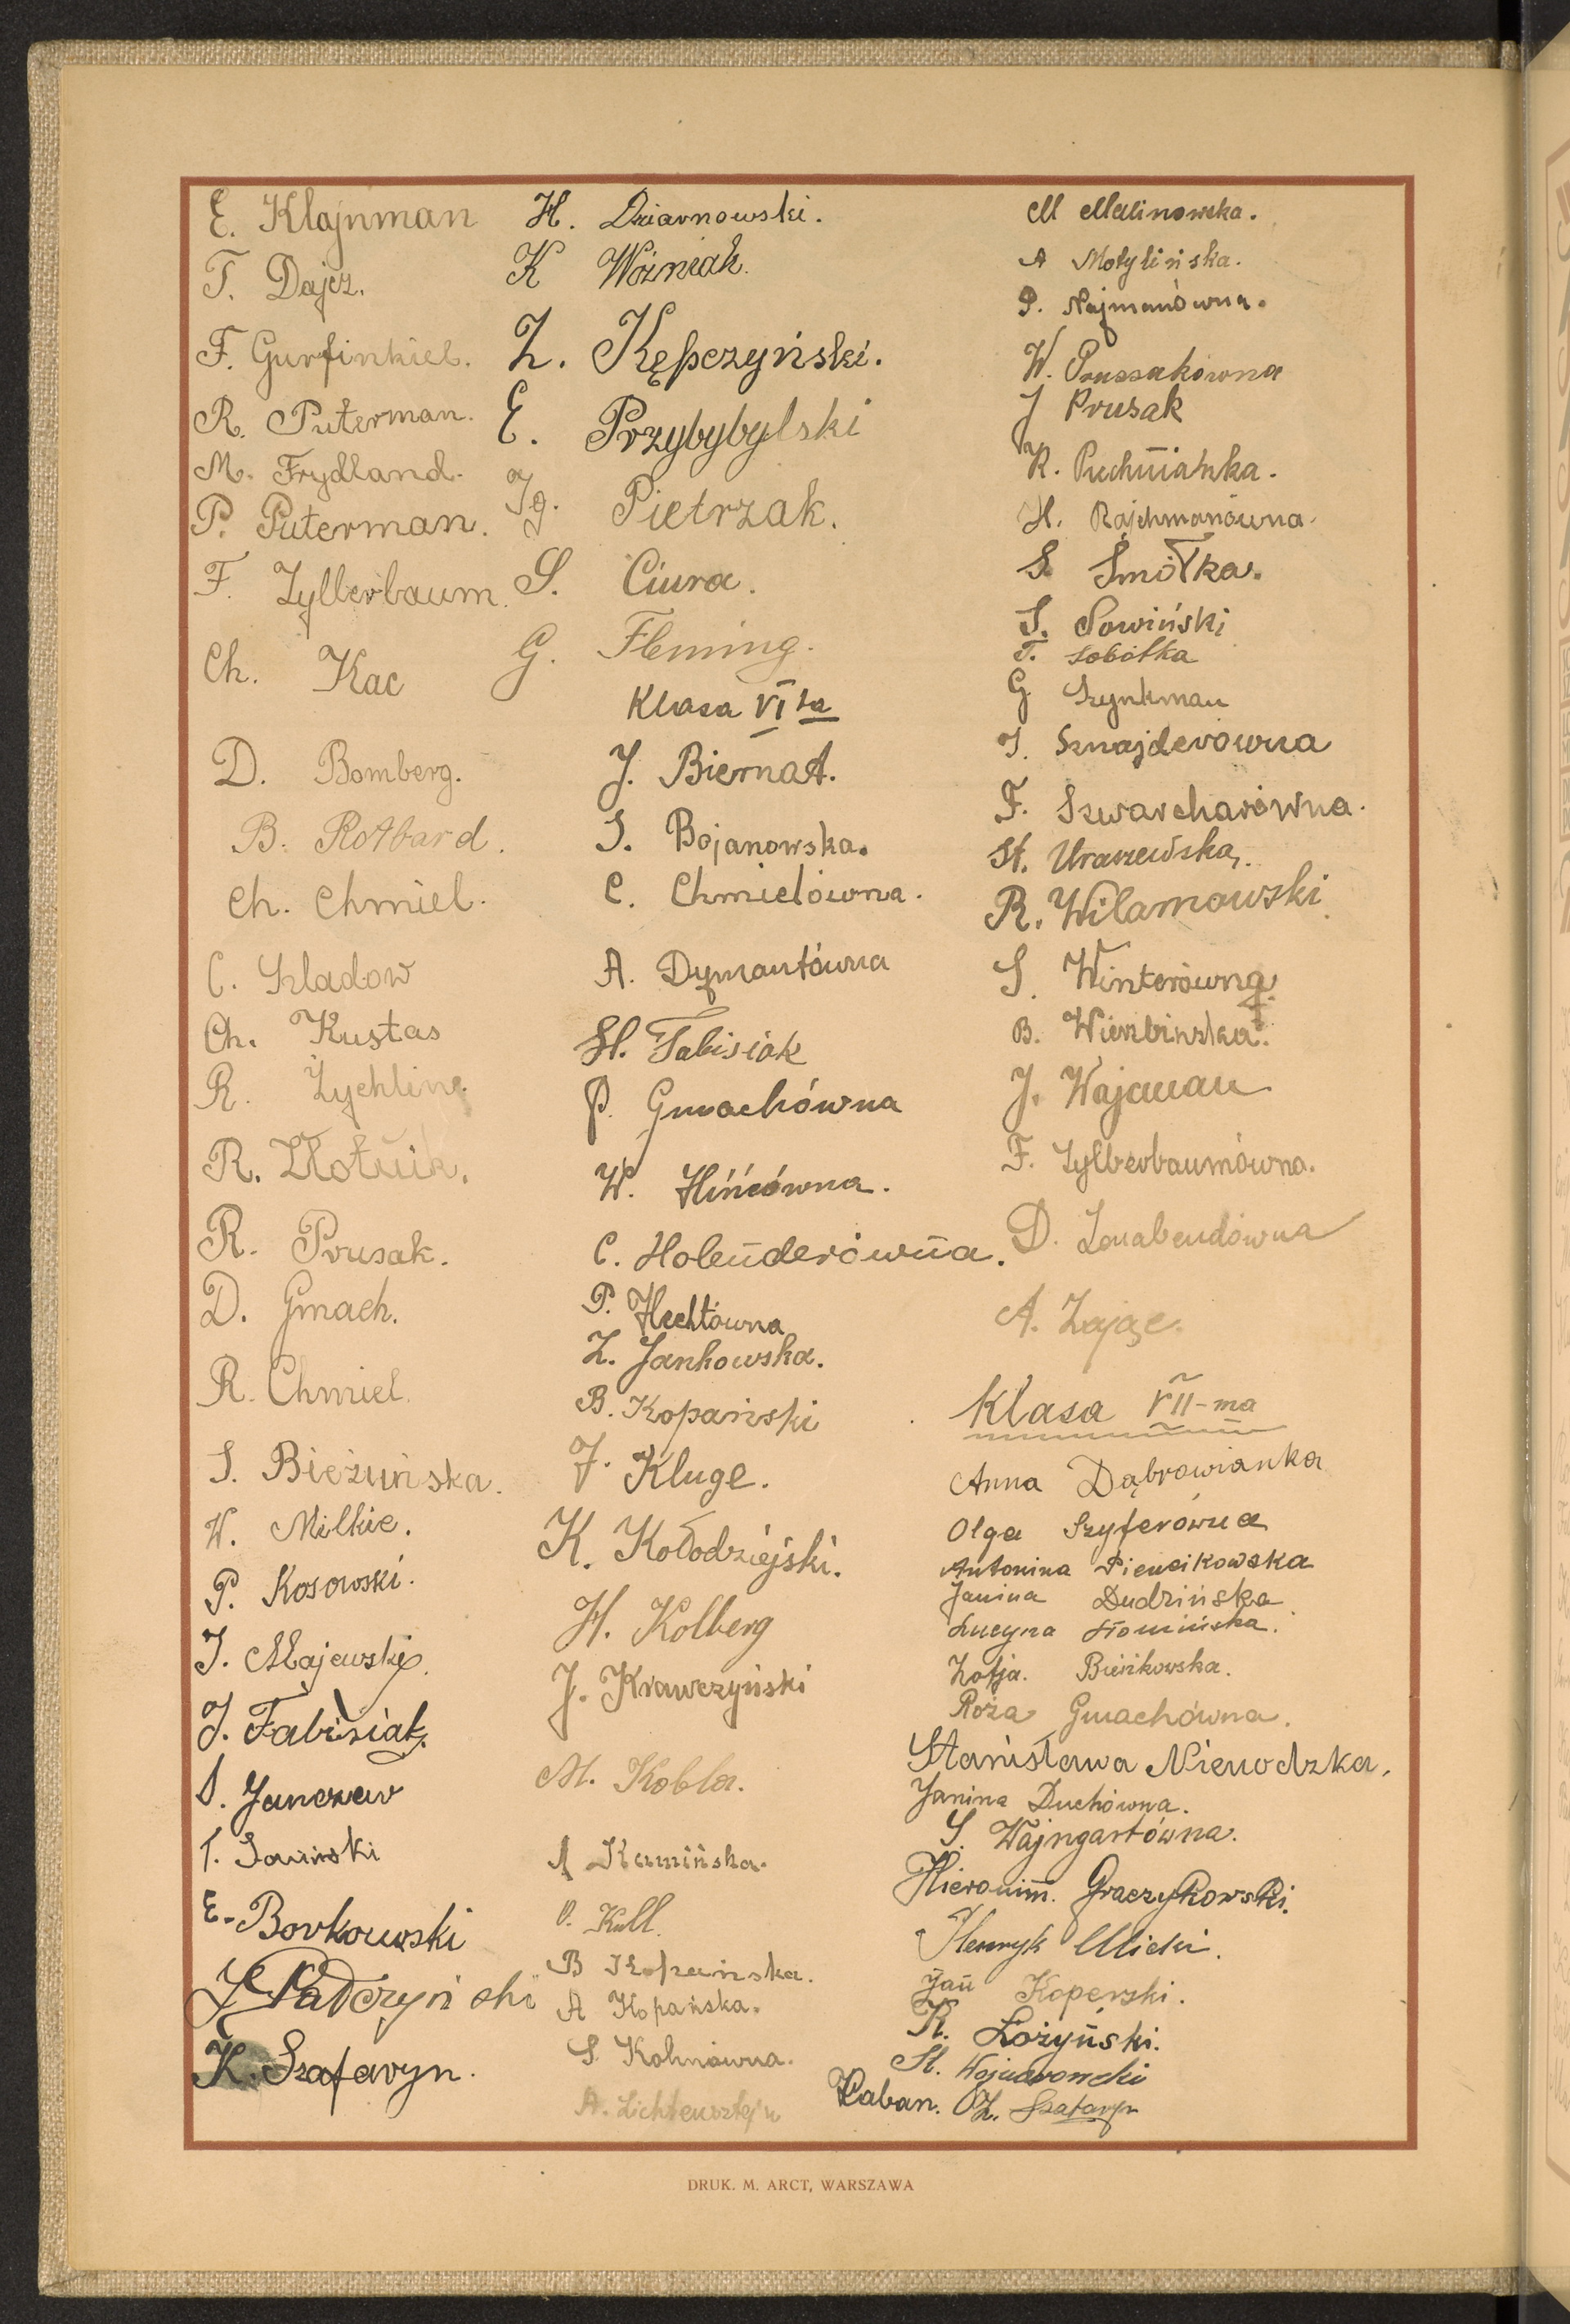 E. Klajnman
T. Dajcz.
F. Gurfinkiel.
R. Puterman.
M. Frydland.
P. Puterman.
F. Zylberbaum.
Ch. Kac
D. Bomberg.
B. Rotbard.
Ch. Chmiel.
C. Szladow
Ch. Kustas
R. Żychling
R. Złotnik.
R. Prusak.
D. Gmach.
R. Chmiel.
S. Bieżuńska.
W. Milkie.
P. Kosowski.
J. Majewski.
J. Fabisiak.
S. Janczew
T. Sowiński
E. Borkowski
Padczyński
K. Szafaryn.
H. Dziarnowski.
K Woźniak.
Z. Kępczyński.
E. Przybybylski
Ig. Pietrzak.
S. Ciura.
G. Fleming.
Klasa VI ta
J. Biernat.
S. Bojanowska.
C. Chmielówna.
A. Dymantówna
St. Fabisiak
P. Gmachówna
W. Hińcówna.
C. Holenderówna.
P. Hechtówna
Z. Jankowska.
B. Kopański
F. Kluge.
K. Kołodziejski.
H. Kolberg
J. Krawczyński
M. Kobla.
A Kamińska.
O. Kull.
B Kopańska.
A Kopańska.
S. Kohnówna.
A. Lichtensztejn
M Malinowska.
A Motylińska.
P. Najmanówna.
W. Prussakówna
J Prusak
R. Puchniarka.
H. Rajchmanówna.
S Smółka.
S. Sowiński
T. Sobótka
G Szynkman
I. Sznajderówna
F. Szwarcharówna.
St. Uraszewska.
R. Wilamowski
S. Winterówna
B. Wierzbinska.
J. Wajcman
F. Zylberbaumówna.
D. Zonabendówna
A. Zając.
Klasa VII-ma
Anna Dąbrowianka
Olga Szyferówna
Antonina Piencikowska
Janina Dudzińska
Lucyna Słomińska.
Zofja. Bieńkowska.
Róża Gmachówna.
Stanisława Nienodzka.
Janina Duchówna.
S. Wajngartówna.
Hieronim. Graczykowski.
Henryk Ulicki.
Jan Koperski.
R. Łożyński.
St. Wojciwoncki
Kaban. Z. Szafaryn
DRUK. M. ARCT, WARSZAWA